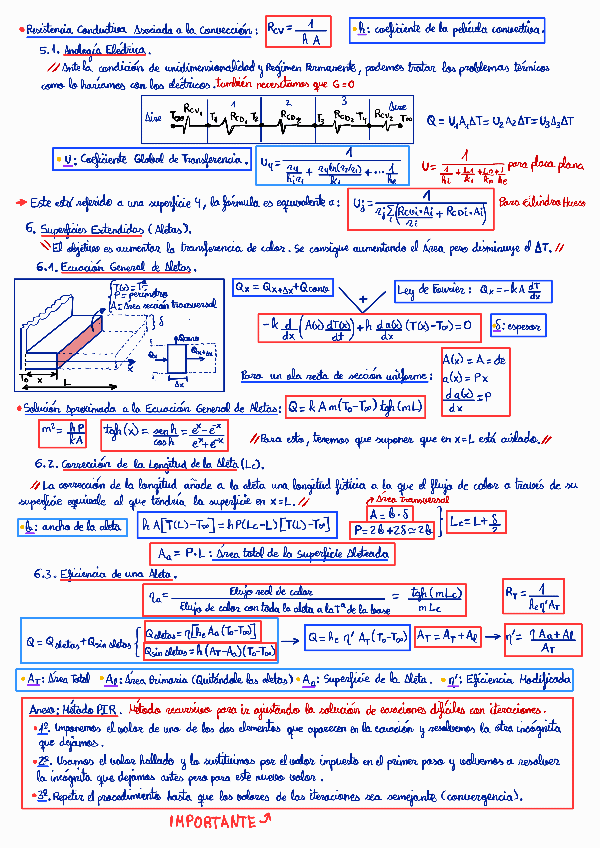 • Resistencia Conductiva Asociada a la Convección: R_CV = 1 / (h A) • h: coeficiente de la película convectiva.
5.1. Analogía Eléctrica.
// Ante la condición de unidimensionalidad y Regimen Permanente, podemos tratar los problemas térmicos
como lo haríamos con los eléctricos. también necesitamos que G=0
Aire T∞ R_CV1 T1 1 R_CD1 T2 2 R_CD2 T3 3 R_CD3 T4 R_CV2 Aire T∞
Q = U1A1ΔT = U2A2ΔT = U3A3ΔT
• U: Coeficiente Global de Transferencia.
U4 = 1 / (r4/(hi r1) + r4 ln(r2/r1)/k1 + ... 1/he)
U = 1 / (1/hi + L1/k1 + Ln/kn + 1/he) para placa plana
→ Este está referido a una superficie 4, la fórmula es equivalente a: Uj = 1 / (rj Σ (Rcvi·Ai + RcDi·Ai)/ri) Para Cilindro Hueco
6. Superficies Extendidas (Aletas).
\\ El objetivo es aumentar la transferencia de calor. Se consigue aumentando el Área pero disminuye el ΔT. //
6.1. Ecuación General de Aletas.
T(x) = Tª
P = perímetro
A = área sección transversal
δ
T0 x L
Qx Qconv Qx+Δx Δx
Qx = Qx+Δx + Qconv + Ley de Fourier: Qx = -k A dT/dx
-k d/dx (A(x) dT(x)/dt) + h da(x)/dx (T(x)-T∞) = 0 δ: espesor
Para un ala recta de sección uniforme:
A(x) = A = cte
a(x) = Px
da(x)/dx = P
• Solución Aproximada a la Ecuación General de Aletas: Q = k A m (T0-T∞) tgh(mL)
m² = hP/kA tgh(x) = senh/cosh = (e^x - e^-x)/(e^x + e^-x) // Para esto, tenemos que suponer que en x=L está aislado. //
6.2. Corrección de la Longitud de la Aleta (Lc).
// La corrección de la longitud añade a la aleta una longitud ficticia a la que el flujo de calor a través de su
superficie equivale al que tendría la superficie en x=L. //
Área Transversal
• b: ancho de la aleta h A[T(L)-T∞] = h P(Lc-L)[T(L)-T∞] A = b·δ P = 2b+2δ ≃ 2b } Lc = L + δ/2
Aa = P·L: Área total de la Superficie Aleteada
6.3. Eficiencia de una Aleta.
ηa = Flujo real de calor / Flujo de calor con toda la aleta a la Tª de la base = tgh(mLc) / mLc
RT = 1 / (he η' AT)
Q = Qaletas + Qsin aletas { Qaletas = η[he Aa (T0-T∞)] Qsin aletas = h(AT-Aa)(T0-T∞) → Q = he η' AT (T0-T∞) AT = AT + Aℓ → η' = (η Aa + Aℓ) / AT
• AT: Área Total • Aℓ: Área Primaria (Quitándole las aletas) • Aa: Superficie de la Aleta. • η': Eficiencia Modificada
Anexo: Método PIR. Método recursivo para ir ajustando la solución de ecuaciones difíciles con iteraciones.
• 1º. Imponemos el valor de uno de los dos elementos que aparecen en la ecuación y resolvemos la otra incógnita
que dejamos.
• 2º. Usamos el valor hallado y lo sustituimos por el valor impuesto en el primer paso y volvemos a resolver
la incógnita que dejamos antes pero para este nuevo valor.
• 3º. Repetir el procedimiento hasta que los valores de las iteraciones sea semejante (convergencia).
IMPORTANTE